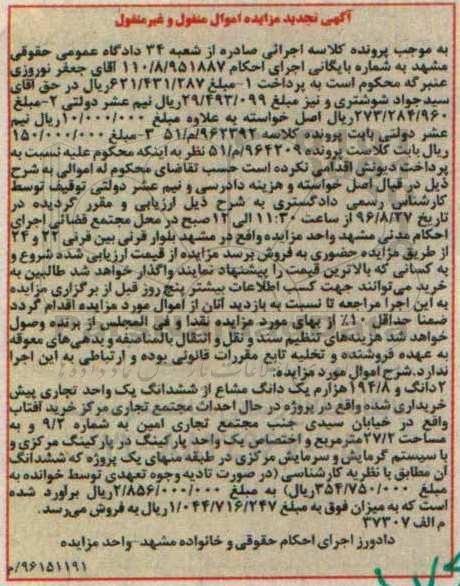 آگهی تجدید مزایده اموال منقول و غیرمنقول
به موجب پرونده کلاسه اجرائی صادره از شعبه ۳۴ دادگاه عمومی حقوقی
مشهد به شماره بایگانی اجرای احکام ۱۱۰/۸/۹۵۱۸۸۷ آقای جعفر نوروزی
عنبرگه محکوم است به پرداخت ۱-مبلغ ۶۲۱/۴۳۱/۲۸۷ریال در حق آقای
سیدجواد شوشتری و نیز مبلغ ۲۹/۴۹۳/۰۹۹ریال نیم عشر دولتی ۲-مبلغ
۲۷۳/۲۸۴/۹۶۰ریال اصل خواسته به علاوه مبلغ ۱۰/۰۰۰/۰۰۰ریال نیم
عشر دولتی بابت پرونده کلاسه ۹۶۲۳۹۲/م/۵۱ ۳-مبلغ ۱۵۰/۰۰۰/۰۰۰
ریال بابت کلاست پرونده ۹۶۴۲۰۹/م/۵۱ نظر به اینکه محکوم علیه نسبت به
پرداخت دیونش اقدامی نکرده است حسب تقاضای محکوم له اموالی به شرح
ذیل در قبال اصل خواسته و هزینه دادرسی و نیم عشر دولتی توقیف توسط
کارشناس رسمی دادگستری به شرح ذیل ارزیابی و مقرر گردیده در
تاریخ ۹۶/۸/۲۷ از ساعت ۱۱:۳۰ الی ۱۲ صبح در محل مجتمع قضائی اجرای
احکام مدنی مشهد واحد مزایده واقع در مشهد بلوار قرنی بین قرنی ۲۲ و ۲۴
از طریق مزایده حضوری به فروش برسد مزایده از قیمت ارزیابی شده شروع و
به کسانی که بالاترین قیمت را پیشنهاد نمایند واگذار خواهد شد طالبین به
خرید می‌توانند جهت کسب اطلاعات بیشتر پنج روز قبل از برگزاری مزایده
به این اجرا مراجعه تا نسبت به بازدید آنان از اموال مورد مزایده اقدام گردد
ضمنا حداقل ۱۰٪ از بهای مورد مزایده نقدا و فی المجلس از برنده وصول
خواهد شد هزینه‌های تنظیم سند و نقل و انتقال بالمناصفه و بدهی‌های معوقه
به عهده فروشنده و تخلیه تابع مقررات قانونی بوده و ارتباطی به این اجرا
ندارد.شرح اموال مورد مزایده:
۲دانگ و ۱۹۴/۸هزارم یک دانگ مشاع از ششدانگ یک واحد تجاری پیش
خریداری شده واقع در پروژه در حال احداث مجتمع تجاری مرکز خرید آفتاب
واقع در خیابان سیدی جنب مجتمع تجاری امین به شماره ۹/۲ و به
مساحت ۲۷/۲مترمربع و اختصاص یک واحد پارکینگ در پارکینگ مرکزی و
با سیستم گرمایش و سرمایش مرکزی در طبقه منهای یک پروژه که ششدانگ
آن مطابق با نظریه کارشناسی (در صورت تادیه وجوه تعهدی توسط خوانده به
مبلغ ۳۵۴/۷۵۰/۰۰۰ریال) به مبلغ ۲/۸۵۶/۰۰۰/۰۰۰ریال برآورد شده
است که به میزان فوق به مبلغ ۱/۰۴۴/۷۱۶/۲۴۷ریال به فروش می‌رسد.
م الف ۳۷۳۰۷
دادورز اجرای احکام حقوقی و خانواده مشهد-واحد مزایده
۹۶۱۵۱۱۹۱/م